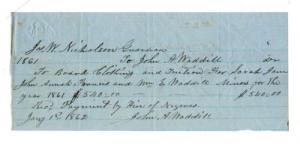 Jos. W. Nicholson Guardian
1861 To John A Waddill Dr
To Board Clothing and Tuition for Sarah Jane
John Annah Frances and Wm E Waddill Minors for the
year 1861 $540.00 $540.00
Recd Payment by Hire of Negroes
Jany 1st 1862 John A Waddill